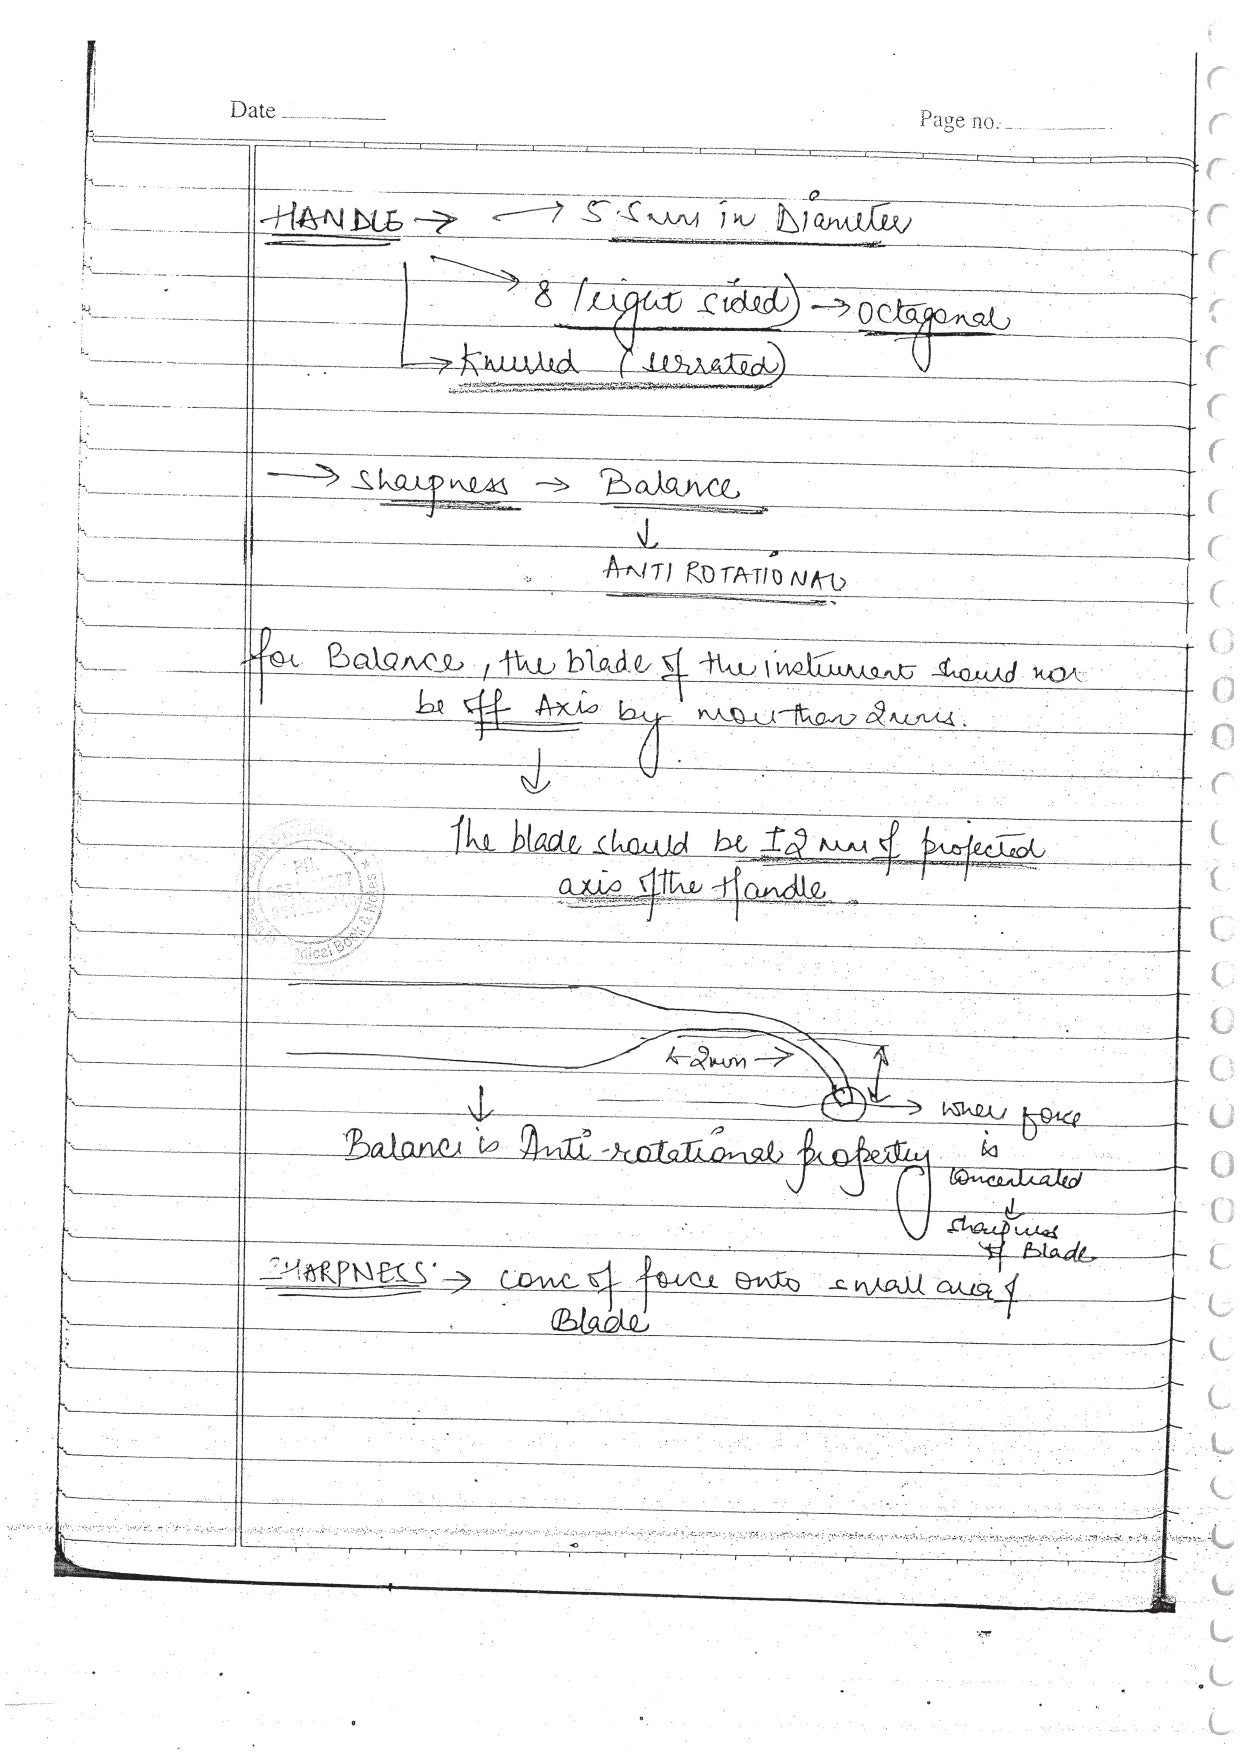 Date
Page no.
HANDLE → → 5.5mm in Diameter
→ 8 (eight sided) → Octagonal
→ Knurled (serrated)
→ Sharpness → Balance
↓
ANTI ROTATIONAL
for Balance, the blade of the instrument should not
be off Axis by more than 2mms.
↓
The blade should be ±2 mm of projected
axis of the Handle.
← 2mm →
↓
→ when force
Balance is Anti-rotational property
is
concentrated
↓
sharpness
of Blade
SHARPNESS → conc of force onto small area of
Blade